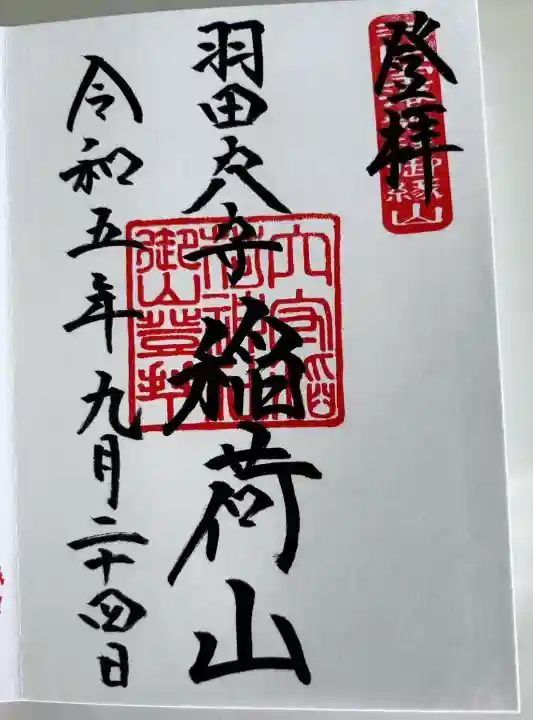 登拝
羽田穴守稲荷山
令和五年九月二十四日